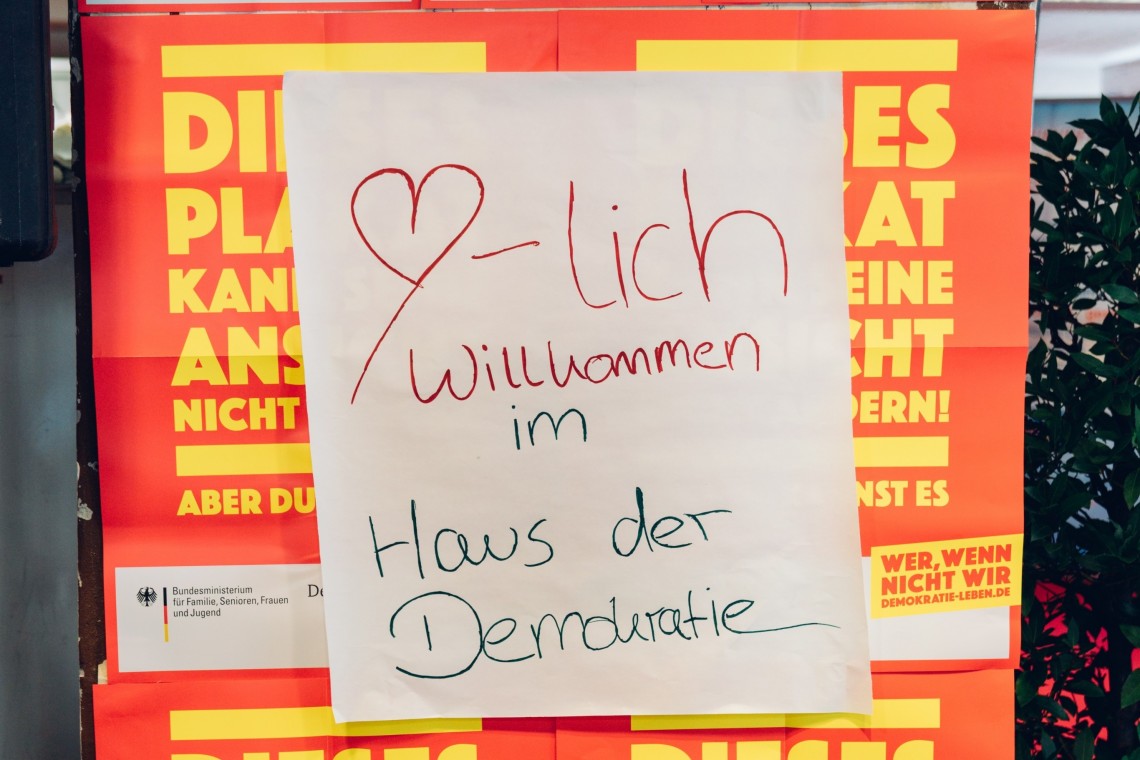 DIE
PLA
KAN
ANS
NICHT
ABER DU
Bundesministerium
für Familie, Senioren, Frauen
und Jugend
De
♡-lich
Willkommen
im
Haus der
Demokratie
SES
KAT
EINE
CHT
DERN!
NST ES
WER, WENN
NICHT WIR
DEMOKRATIE-LEBEN.DE
DIESES
DIESES